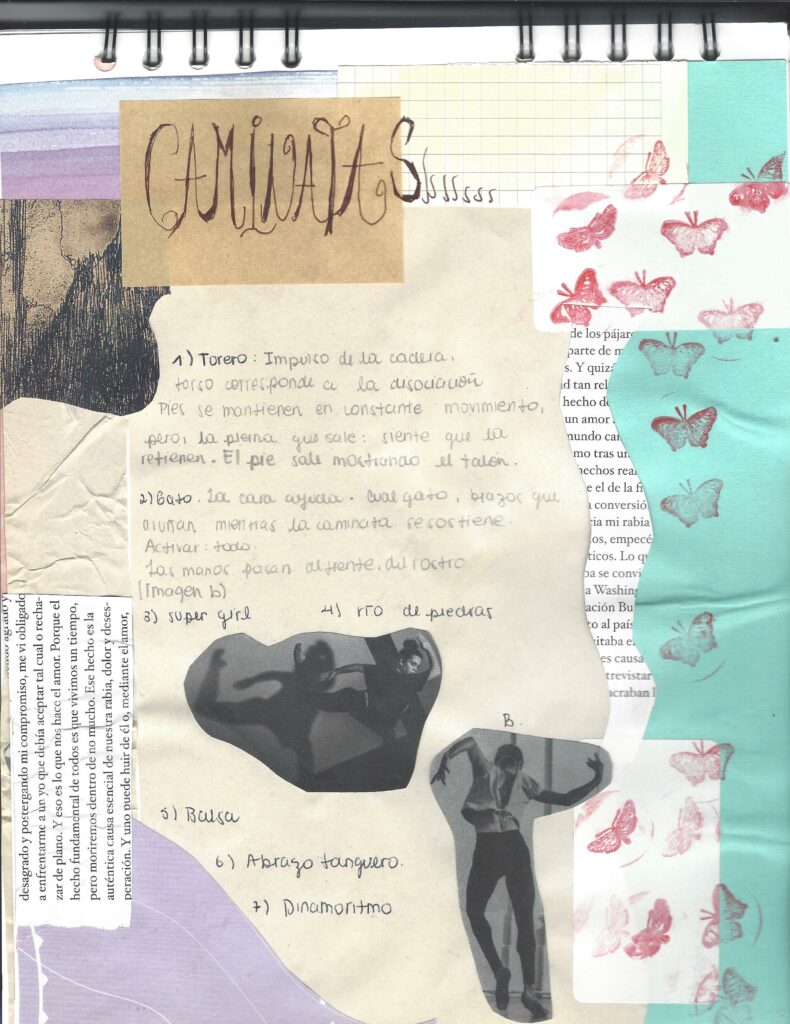 CAMINATASsssssss
1) Torero: Impulso de la cadera.
torso corresponde a la disociación
Pies se mantienen en constante movimiento,
pero, la pierna que sale: siente que la
retienen. El pie sale mostrando el talón.
2) Gato. La cara ayuda. Cual gato, brazos que
mientras la caminata se sostiene.
Activar: todo.
Las manos pasan al frente, del rostro
(Imagen b)
3) super girl 4) río de piedras
B.
5) Balsa
6) Abrazo tanguero.
7) Dinamoritmo
desagrado y postergando mi compromiso, me vi obligado
a enfrentarme a un yo que debía aceptar tal cual o recha-
zar de plano. Y eso es lo que nos hace el amor. Porque el
hecho fundamental de todos es que vivimos un tiempo,
pero moriremos dentro de no mucho. Ese hecho es la
auténtica causa esencial de nuestra rabia, dolor y deses-
peración. Y uno puede huir de él o, mediante el amor,
de los pájar
parte de m
s. Y quizá
d tan rel
hecho de
un amor
mundo ca
mo tras un
hechos real
e el de la fi
a conversió
cia mi rabia
los, empecé
ticos. Lo qu
ba se convi
a Washing
ación Bu
to al país
itaba e
es causa
trevistar
acraban l